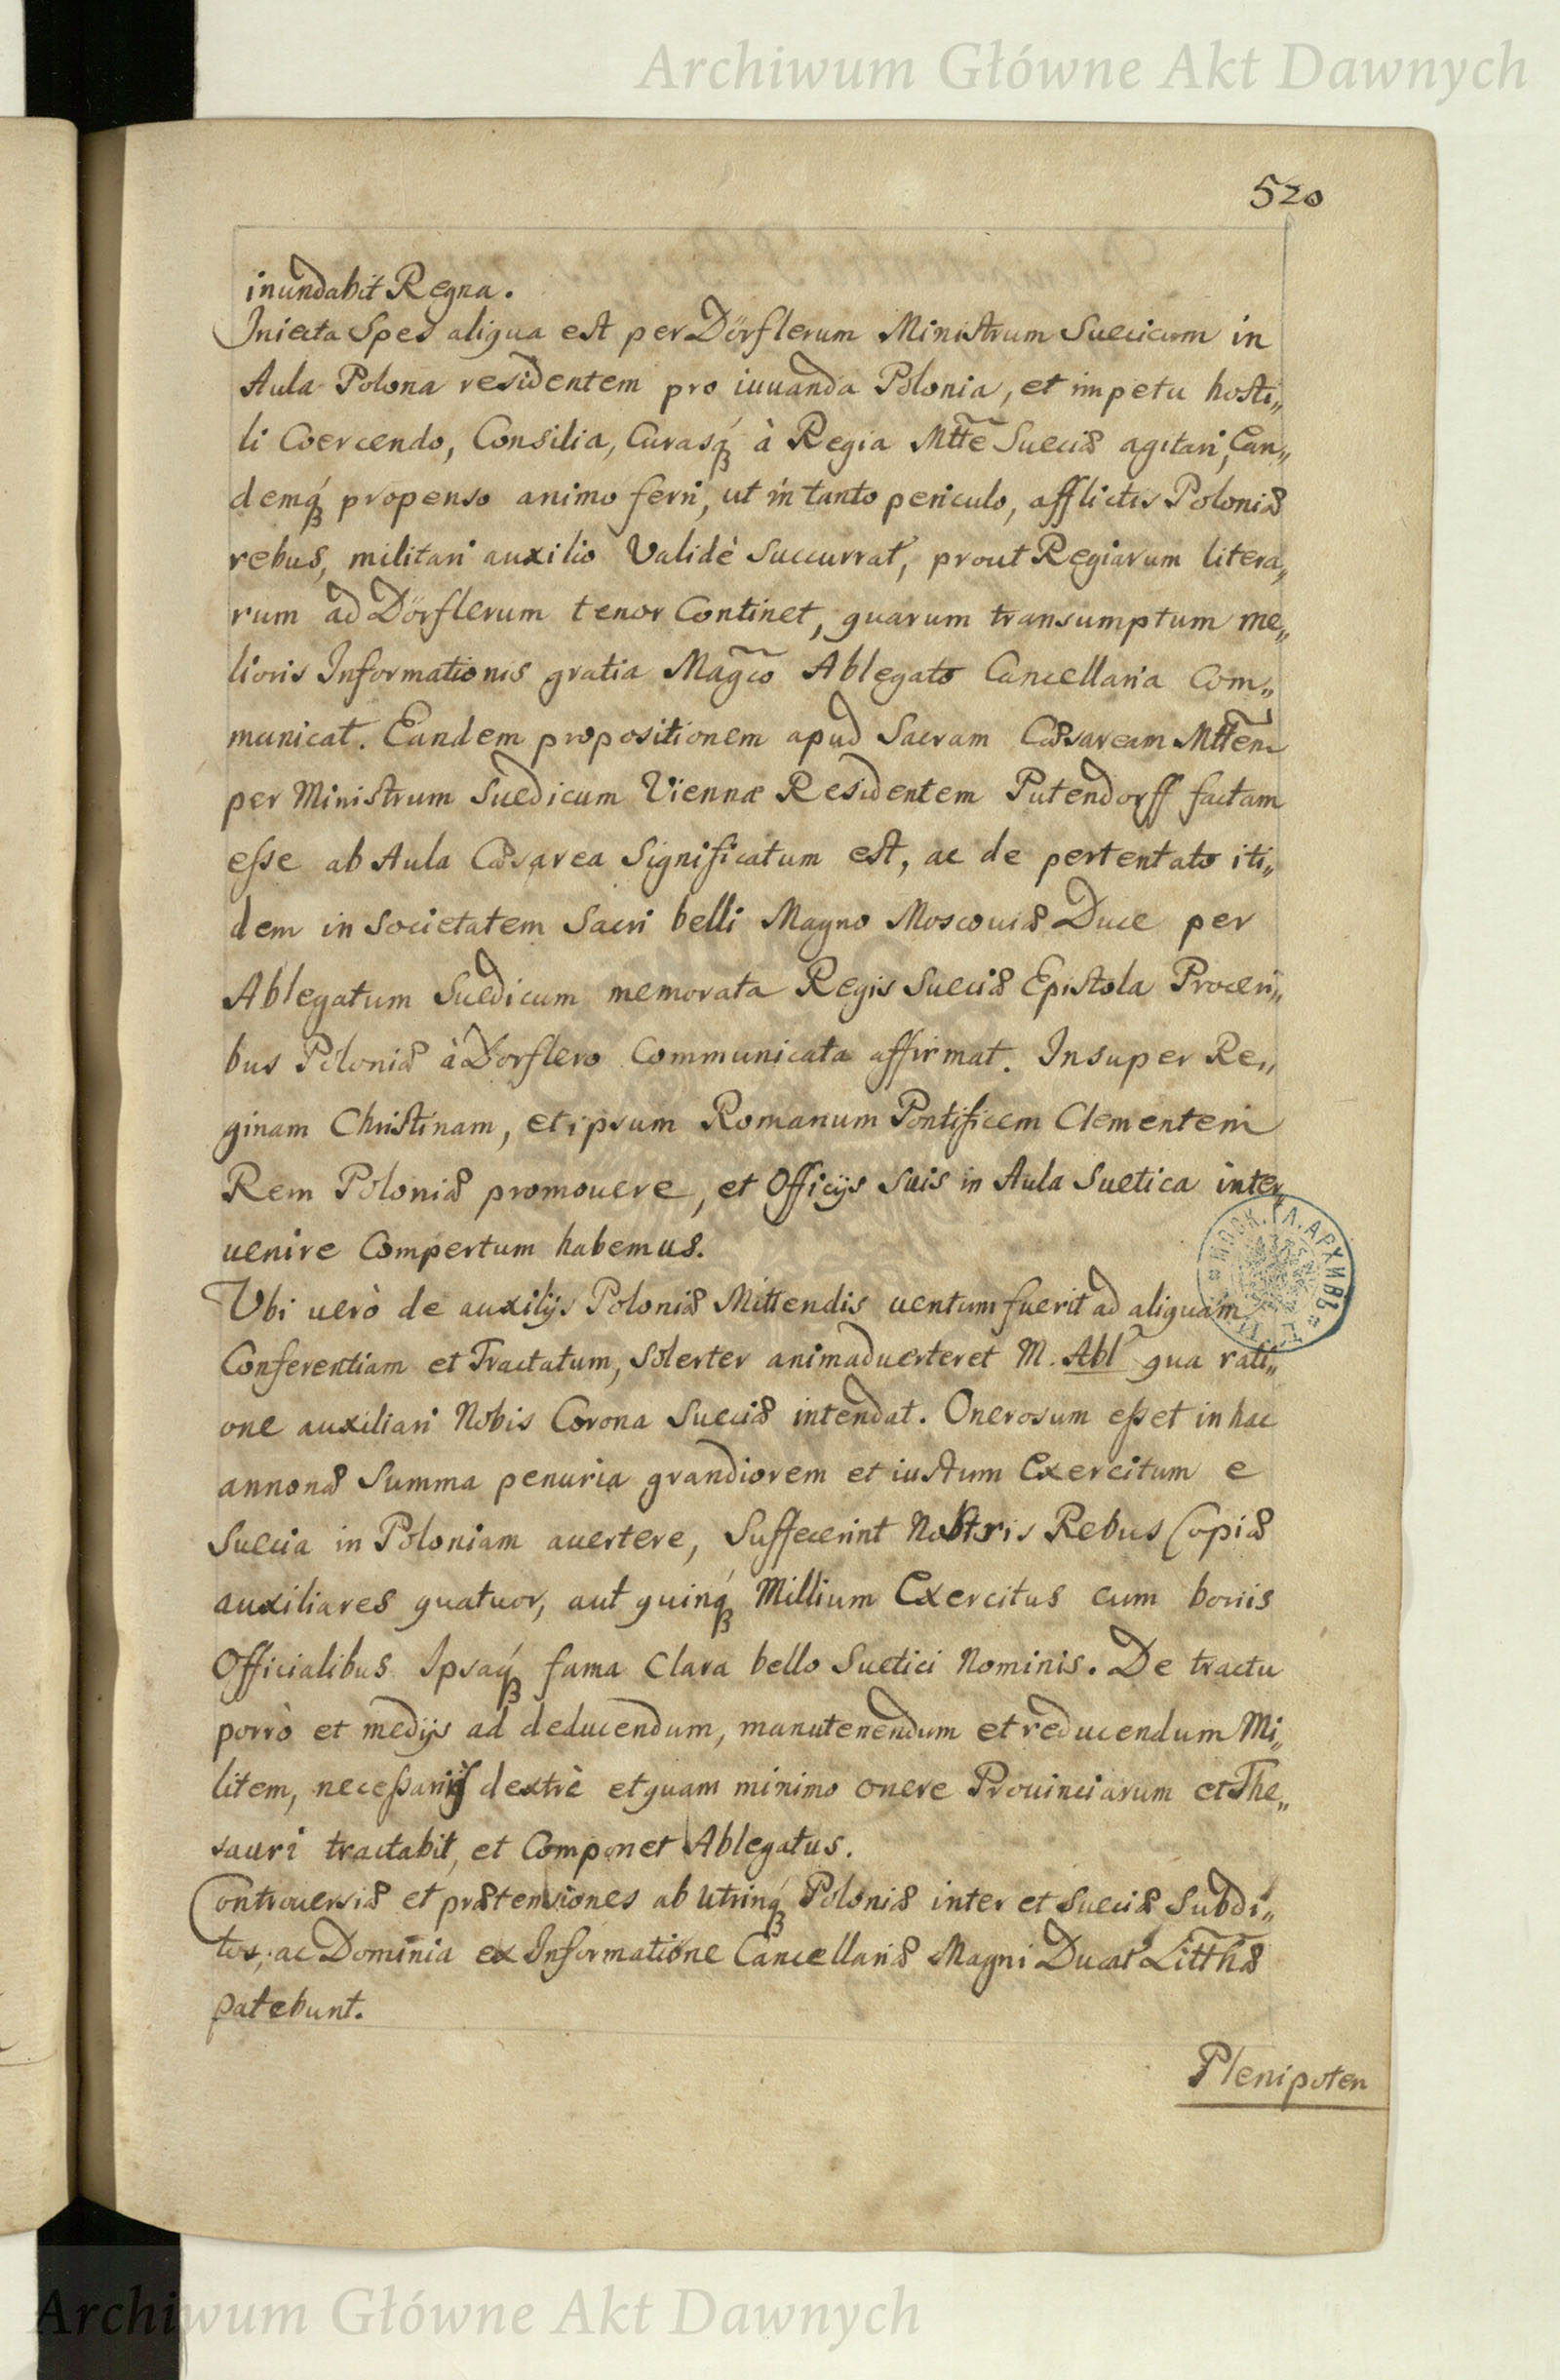 Archiwum Główne Akt Dawnych
520
inundabit Regna.
Iniecta Spes aliqua est per Dörflerum Ministrum Suecicum in
Aula Polona residentem pro iuuanda Polonia, et impetu hosti„
li Coercendo, Consilia, Curasq́ à Regia Mtte Sueciæ agitari, Ean„
demq́ propenso animo ferri, ut in tanto periculo, afflictis Poloniæ
rebus, militari auxilio Validè Succurrat, prout Regiarum litera„
rum ad Dörflerum tenor Continet, quarum transumptum me„
lioris Informationis gratia Magco Ablegato Cancellaria Com„
municat. Eandem propositionem apud Sacram Cæsaream Mttem
per Ministrum Suedicum Viennæ Residentem Putendorff factam
esse ab Aula Cæsarea Significatum est, ac de pertentato iti„
dem in Societatem Sacri belli Magno Moscouiæ Duce per
Ablegatum Suedicum memorata Regis Sueciæ Epistola Proceri„
bus Poloniæ à Dorflero Communicata affirmat. Insuper Re„
ginam Christinam, et ipsum Romanum Pontificem Clementem
Rem Poloniæ promouere, et Officijs Suis in Aula Suetica inter„
uenire Compertum habemus.
Vbi uerò de auxilijs Poloniæ Mittendis uentum fuerit ad aliquam
Conferentiam et Tractatum, Solerter animaduerteret M. Abl qua rati„
one auxiliari Nobis Corona Sueciæ intendat. Onerosum esset in hac
annonæ Summa penuria grandiorem et iustum Exercitum e
Suecia in Poloniam auertere, Suffecerint Nostris Rebus Copiæ
auxiliares quatuor, aut quinq́ Millium Exercitus cum bonis
Officialibus Ipsaq́ fama Clara bello Suetici Nominis. De tractu
porrò et medijs ad deducendum, manutenendum et reducendum Mi„
litem, necessarijs dextrè et quam minimo onere Prouinciarum et The„
sauri tractabit, et Componet Ablegatus.
Controuersiæ et prætensiones ab Utrinq́ Poloniæ inter et Sueciæ Subdi„
tos, ac Dominia ex Informatione Cancellariæ Magni Ducat Litthæ
patebunt.
Plenipoten
Archiwum Główne Akt Dawnych